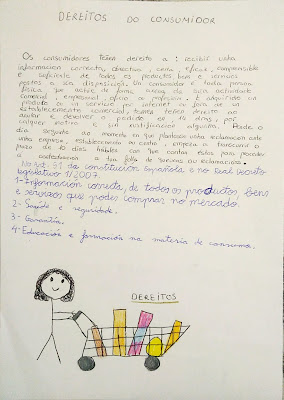 DEREITOS DO CONSUMIDOR
Os consumidores teñen dereito a: recibir unha
información correcta, obxectiva, certa, eficaz, comprensible
e suficiente de todos os produtos bens e servizos
postos a seu disposición. Un consumidor é toda persoa
física que active de forma allea da súa actividade
comercial, empresarial, oficio ou profesión. E adquirido un
produto ou un servizo por internet ou fora de un
establecemento comercial, tamén teñen dereito ao
austar e devolver o pedido en 14 días, por
calquer motivo e sin xustificación algunha. Desde o
día seguinte ao momento en que plantexas unha reclamación ante
unha empresa, establecemento ou centro, empeza a transcurrir o
prazo de 10 días hábiles con que contas estos para proceder
a contestación a túa folla de queixas ou reclamacións.
No art. 51 da constitución Española e no Real Decreto
legislativo 1/2007.
1-Información correcta, de todos os productos, bens
e servizos que podes comprar no mercado.
2- Saúde e seguridade.
3- Garantía.
4-Educación e formación na materia de consumo.
DEREITOS